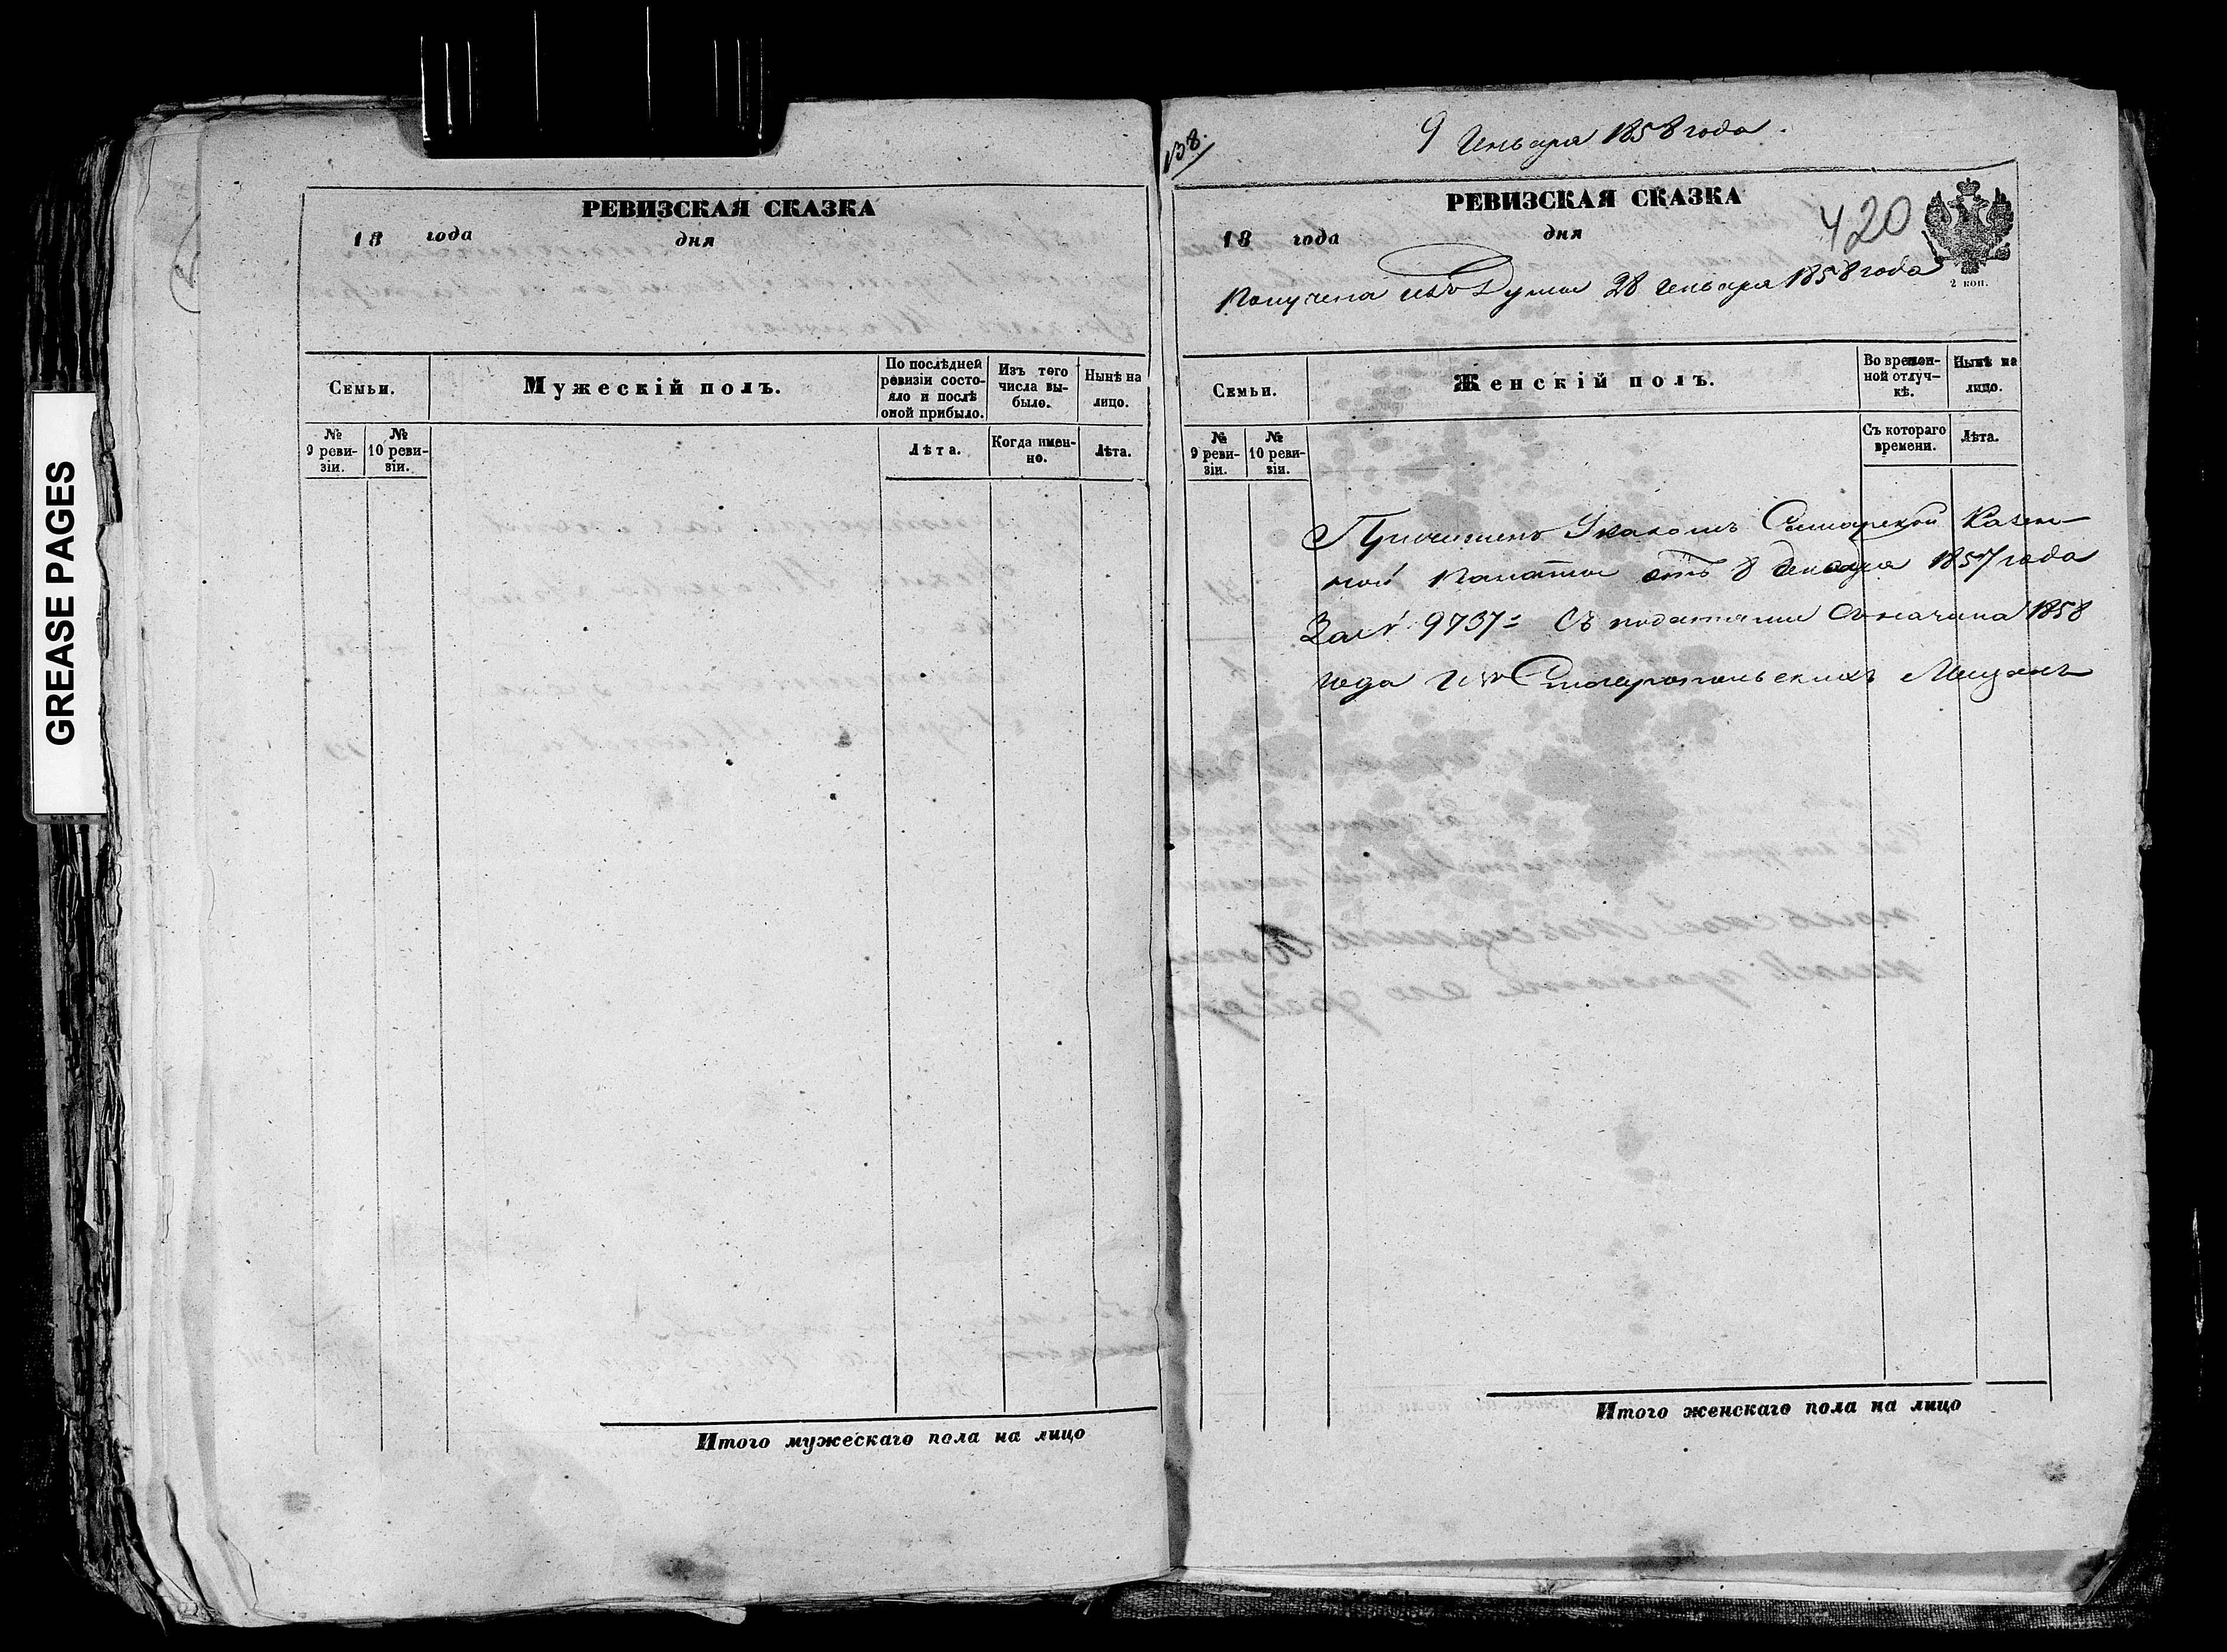 GREASE PAGES
РЕВИЗСКАЯ СКАЗКА
18 года дня
Семьи.
Мужескій полъ.
По послѣдней ревизіи состо-
яло и послѣ оной прибыло.
Изъ того числа вы-
было.
Нынѣ на лицо.
№ 9 реви-
зіи.
№ 10 реви-
зіи.
Лѣта.
Когда имен-
но.
Лѣта.
Итого мужескаго пола на лицо
138.
9 Генваря 1858 года.
РЕВИЗСКАЯ СКАЗКА
420
18 года дня
2 коп.
Получена изъ Думы 28 Генваря 1858 года
Семьи.
Женскій полъ.
Во времен-
ной отлуч-
кѣ.
Нынѣ на лицо.
№ 9 реви-
зіи.
№ 10 реви-
зіи.
Съ котораго времени.
Лѣта.
Причислен Указомъ Самарской Казен-
ной Палаты отъ 8 декабря 1857 года
За № 9737 = Съ податями Съ начала 1858
года Изъ Ставропольскихъ Мещанъ
Итого женскаго пола на лицо